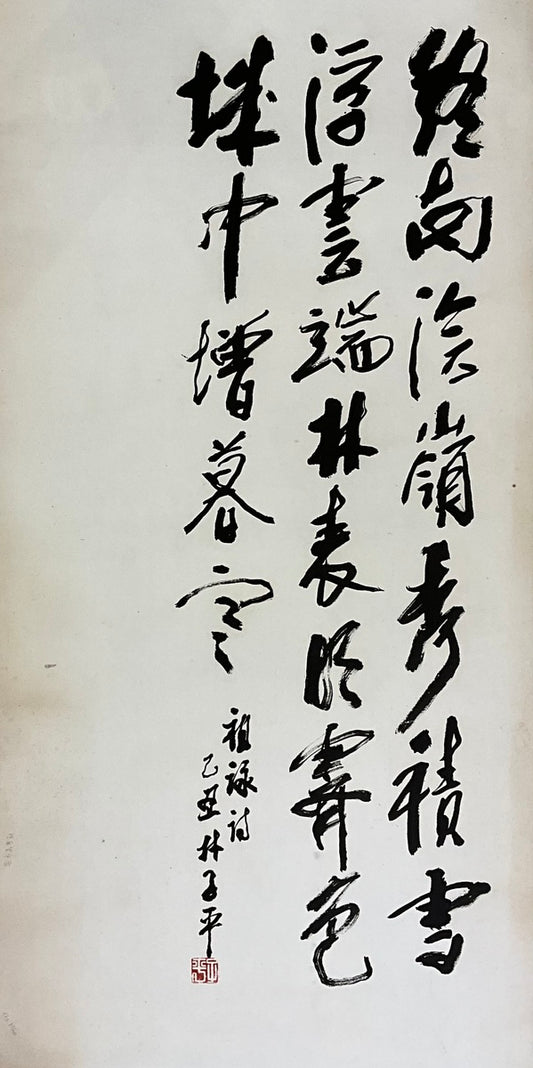 終南陰嶺秀積雪
浮雲端林表明霽色
城中增暮寒
祖詠詩
乙丑林子平